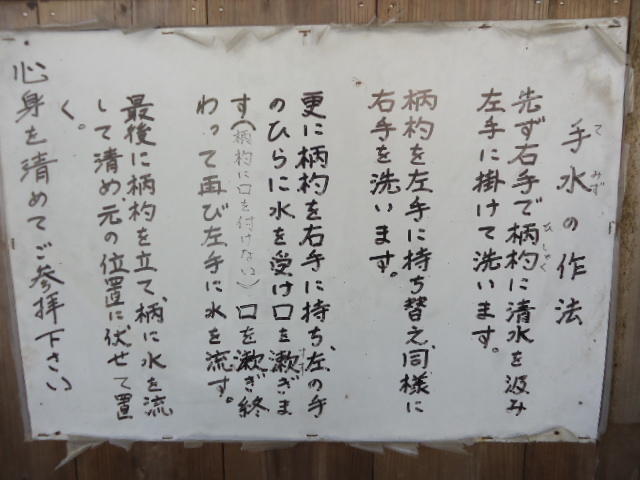 手水の作法
てみず
先ず右手で柄杓に清水を汲み
ひしゃく
左手に掛けて洗います。
柄杓を左手に持ち替え、同様に
右手を洗います。
更に柄杓を右手に持ち、左の手
のひらに水を受け口を漱ぎま
す（柄杓に口を付けない）口を漱ぎ終
わって再び左手に水を流す。
最後に柄杓を立て、柄に水を流
して清め、元の位置に伏せて置
く。
心身を清めてご参拝下さい